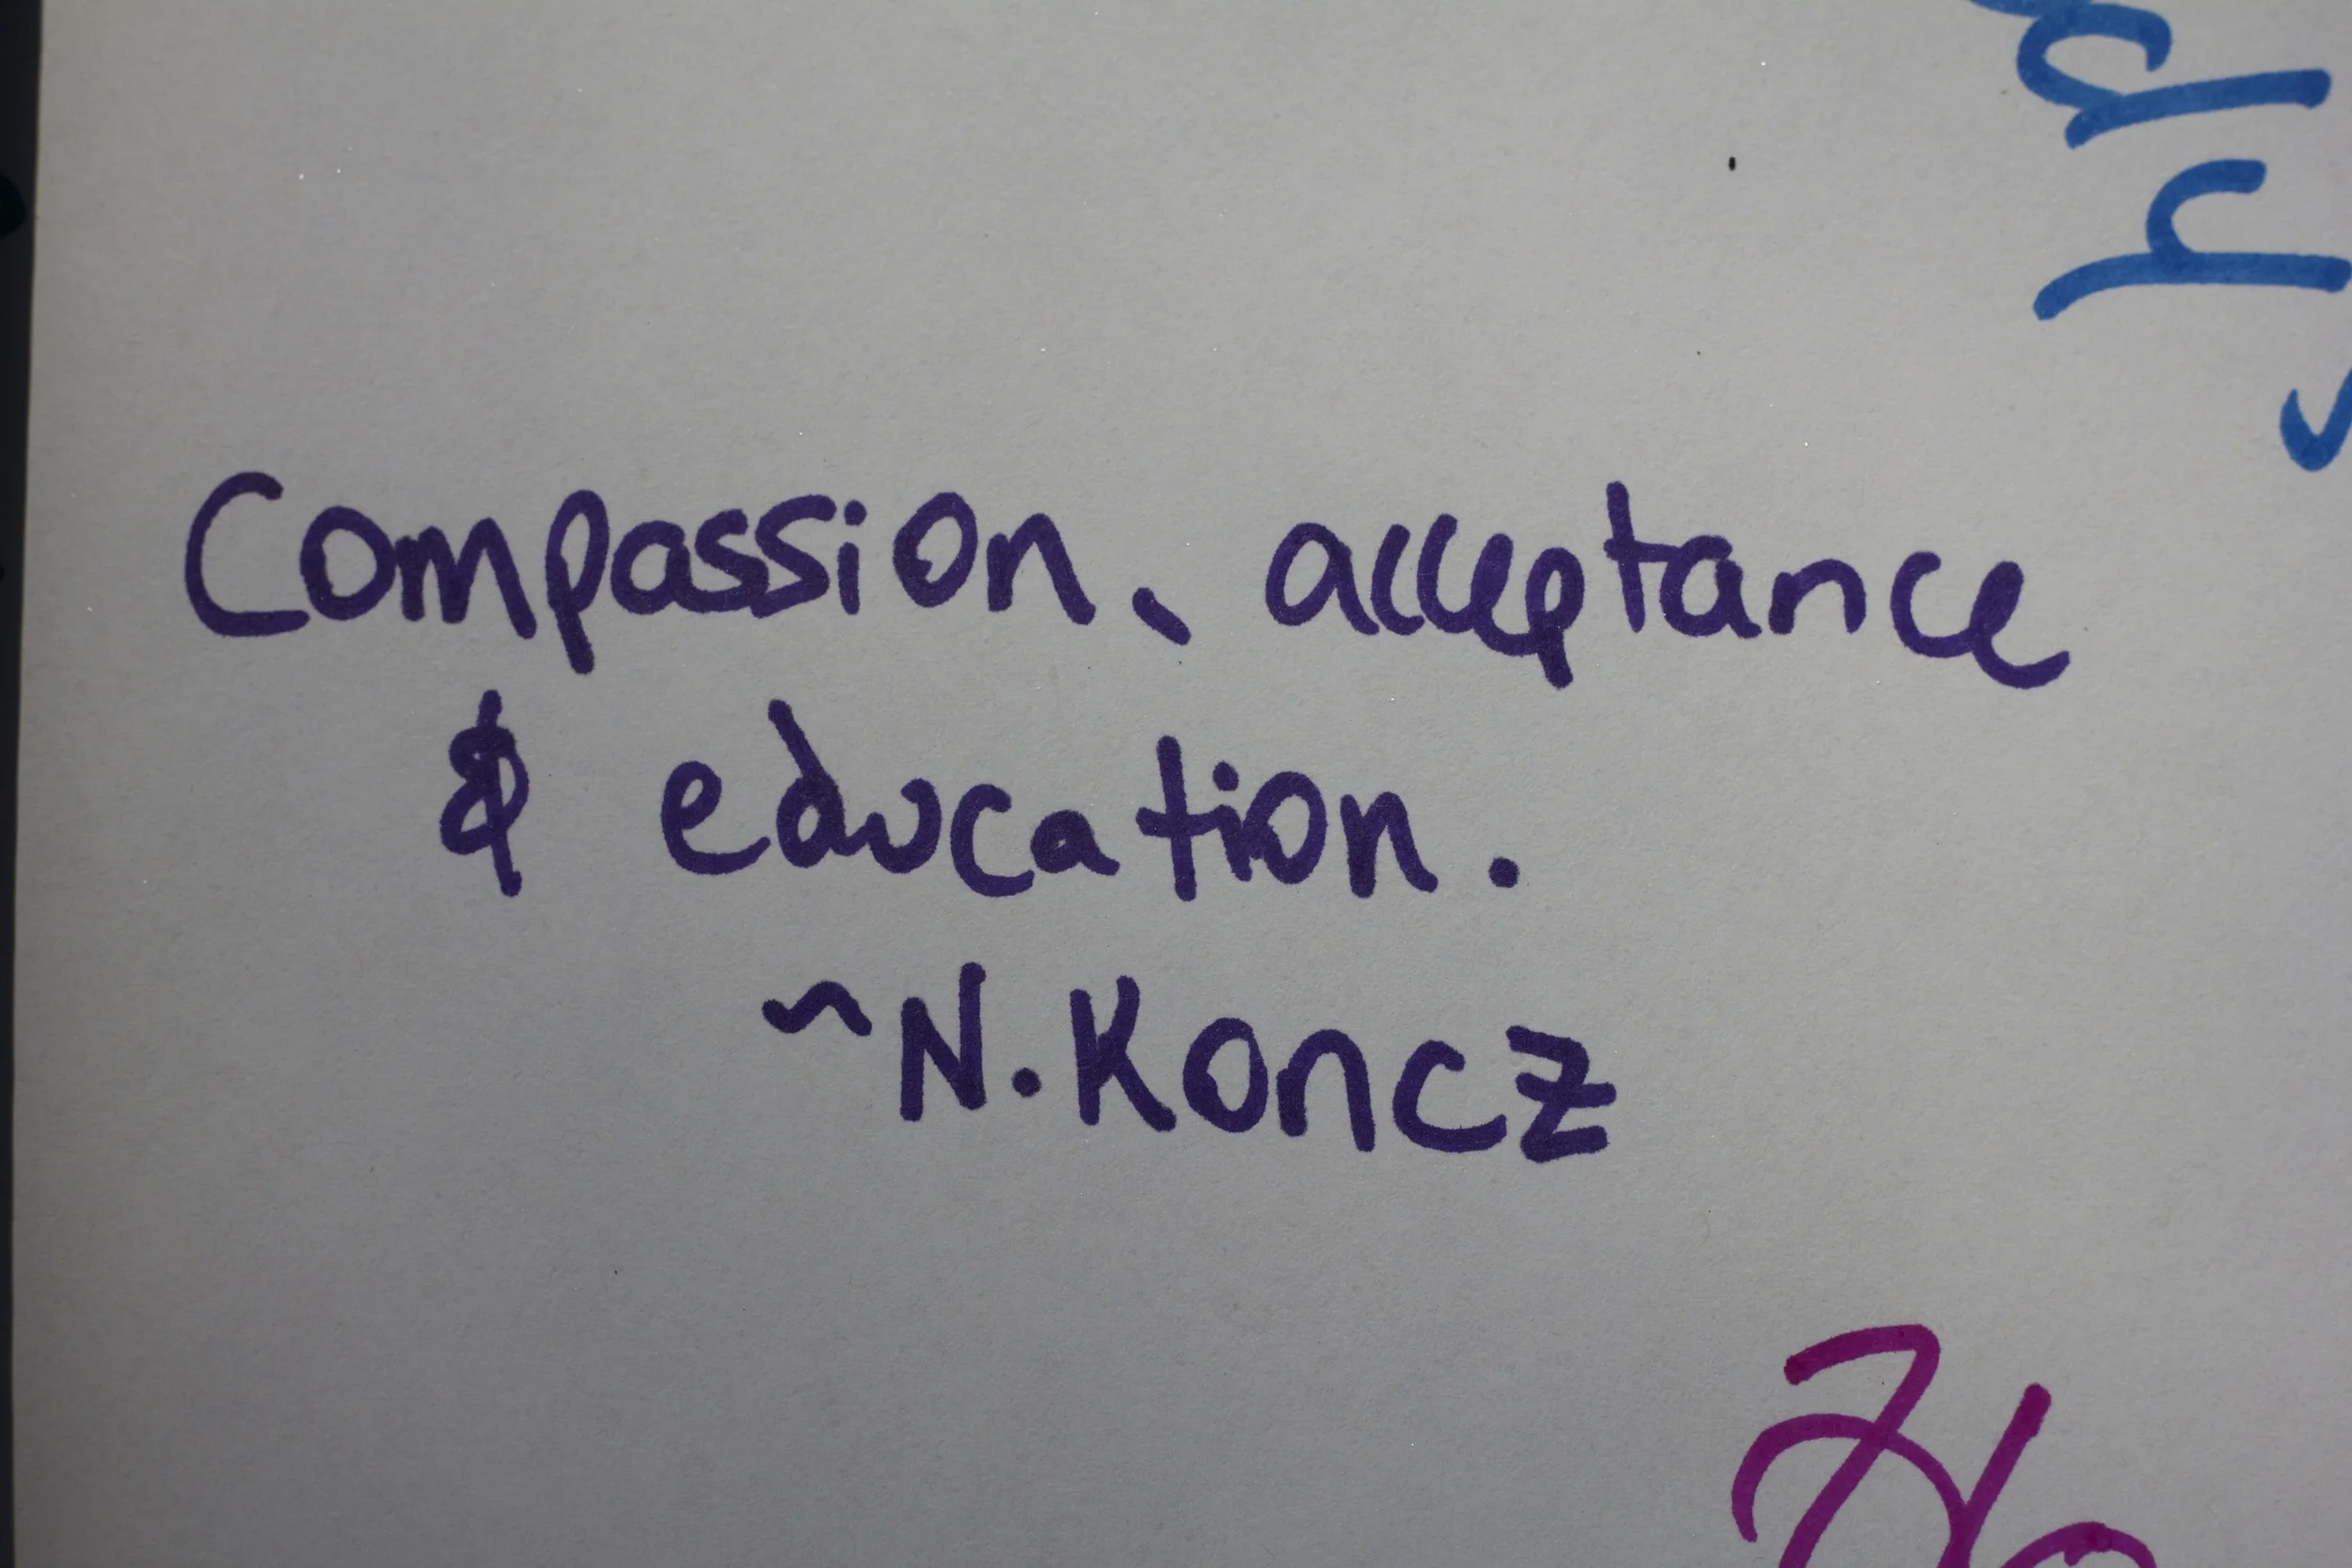 Compassion, acceptance
& education.
~N. Koncz